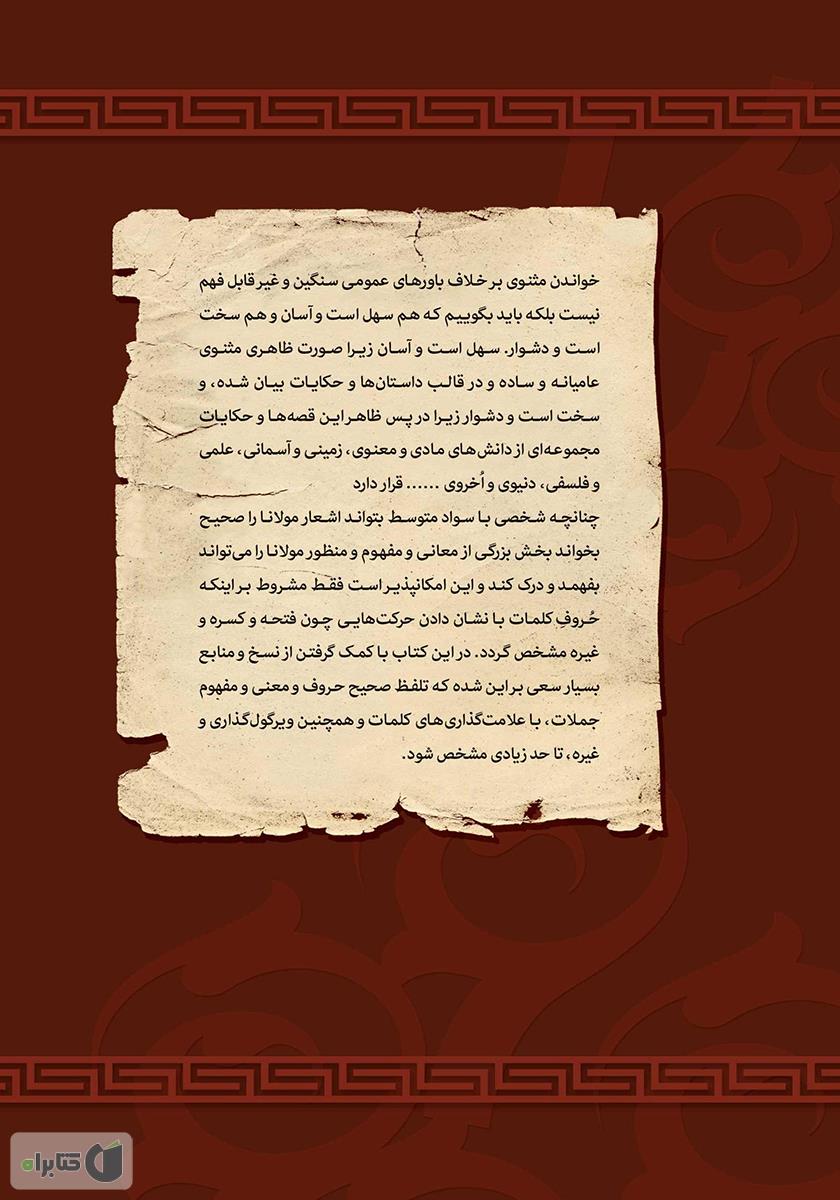 خواندن مثنوی بر خلاف باورهای عمومی سنگین و غیر قابل فهم
نیست بلکه باید بگوییم که هم سهل است و آسان و هم سخت
است و دشوار. سهل است و آسان زیرا صورت ظاهری مثنوی
عامیانه و ساده و در قالب داستان‌ها و حکایات بیان شده، و
سخت است و دشوار زیرا در پس ظاهر این قصه‌ها و حکایات
مجموعه‌ای از دانش‌های مادی و معنوی، زمینی و آسمانی، علمی
و فلسفی، دنیوی و اُخروی ...... قرار دارد
چنانچه شخصی با سواد متوسط بتواند اشعار مولانا را صحیح
بخواند بخش بزرگی از معانی و مفهوم و منظور مولانا را می‌تواند
بفهمد و درک کند و این امکانپذیر است فقط مشروط بر اینکه
حُروفِ کلمات با نشان دادن حرکت‌هایی چون فتحه و کسره و
غیره مشخص گردد. در این کتاب با کمک گرفتن از نسخ و منابع
بسیار سعی بر این شده که تلفظ صحیح حروف و معنی و مفهوم
جملات، با علامت‌گذاری‌های کلمات و همچنین ویرگول‌گذاری و
غیره، تا حد زیادی مشخص شود.
کتابراه